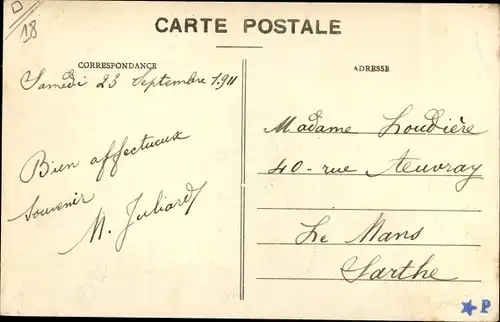 18
CARTE POSTALE
CORRESPONDANCE
ADRESSE
Samedi 23 Septembre 1911
Bien affectueux
souvenir
M. Juliard
Madame Loudière
40 - rue Auvray
Le Mans
Sarthe
P